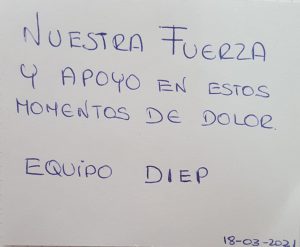 NUESTRA FUERZA
Y APOYO EN ESTOS
MOMENTOS DE DOLOR.
EQUIPO DIEP
18-03-2021